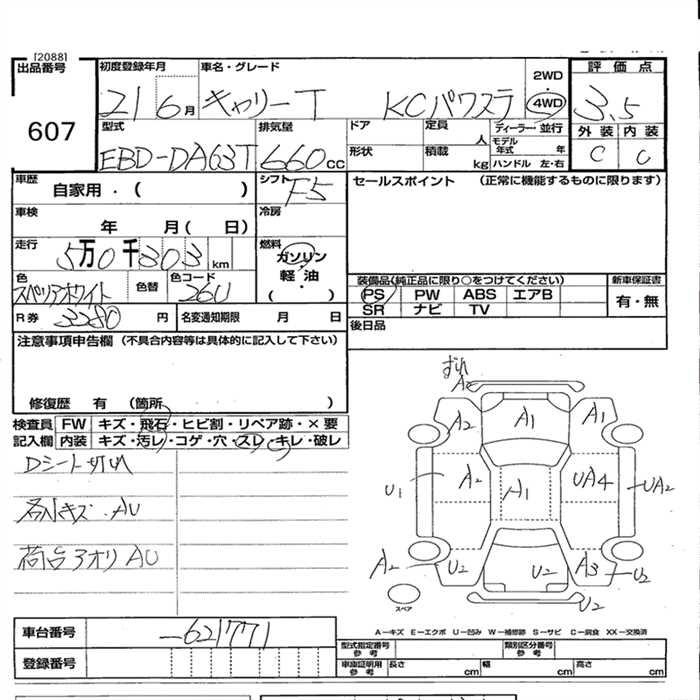 [2088]
出品番号 初度登録年月 車名・グレード 2WD 評価点
607 21 6月 キャリーT KCパワステ ・ 4WD 3.5
型式 排気量 ドア 定員 人 ディーラー・並行 外装 内装
EBD-DA63T 660cc 形状 積載 kg モデル年式 年 ハンドル 左・右 C C
車歴 自家用・( ) シフト F5 セールスポイント (正常に機能するものに限ります)
車検 年 月( 日) 冷房
走行 5万0千303km 燃料 ガソリン・軽油 ( )
色 スペリアホワイト 色替 色コード 26U
装備品(純正品に限り○をつけてください) 新車保証書
PS PW ABS エアB 有・無
SR ナビ TV
R券 3280円 名変通知期限 月 日 後日品
注意事項申告欄 (不具合内容等は具体的に記入して下さい)
修復歴 有 (箇所 )
検査員記入欄 FW キズ・飛石・ヒビ割・リペア跡・×要
内装 キズ・汚レ・コゲ・穴・スレ・キレ・破レ
Dシート切レ
各Nキズ.AU
荷台アオリAU
ずれ
A2
A2 A1 A1
U1 A2 A1 UA4 UA2
A2 U2 U2 A3 U2
スペア U2
A－キズ E－エクボ U－凹み W－補修跡 S－サビ C－腐食 XX－交換済
車台番号 －621771
型式指定番号 参考 類別区分番号 参考
登録番号 車庫証明用 参考 長さ cm 幅 cm 高さ cm